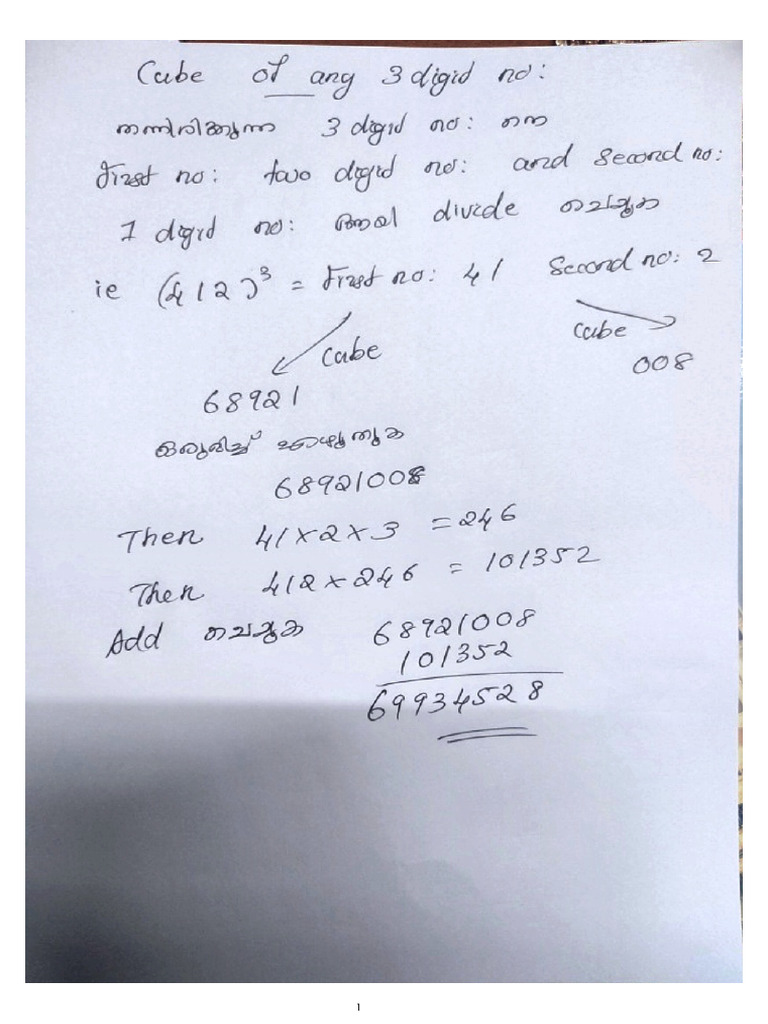 Cube of any 3 digid no:
തന്നിരിക്കുന്ന 3 digid no: നെ
First no: two digid no: and second no:
1 digid no: ആയി divide ചെയ്യുക
ie (412)³ = First no: 41 Second no: 2
Cube Cube
68921 008
ഒരുമിച്ച് എഴുതുക
68921008
Then 41×2×3 = 246
Then 412×246 = 101352
Add ചെയ്യുക 68921008
101352
69934528
1